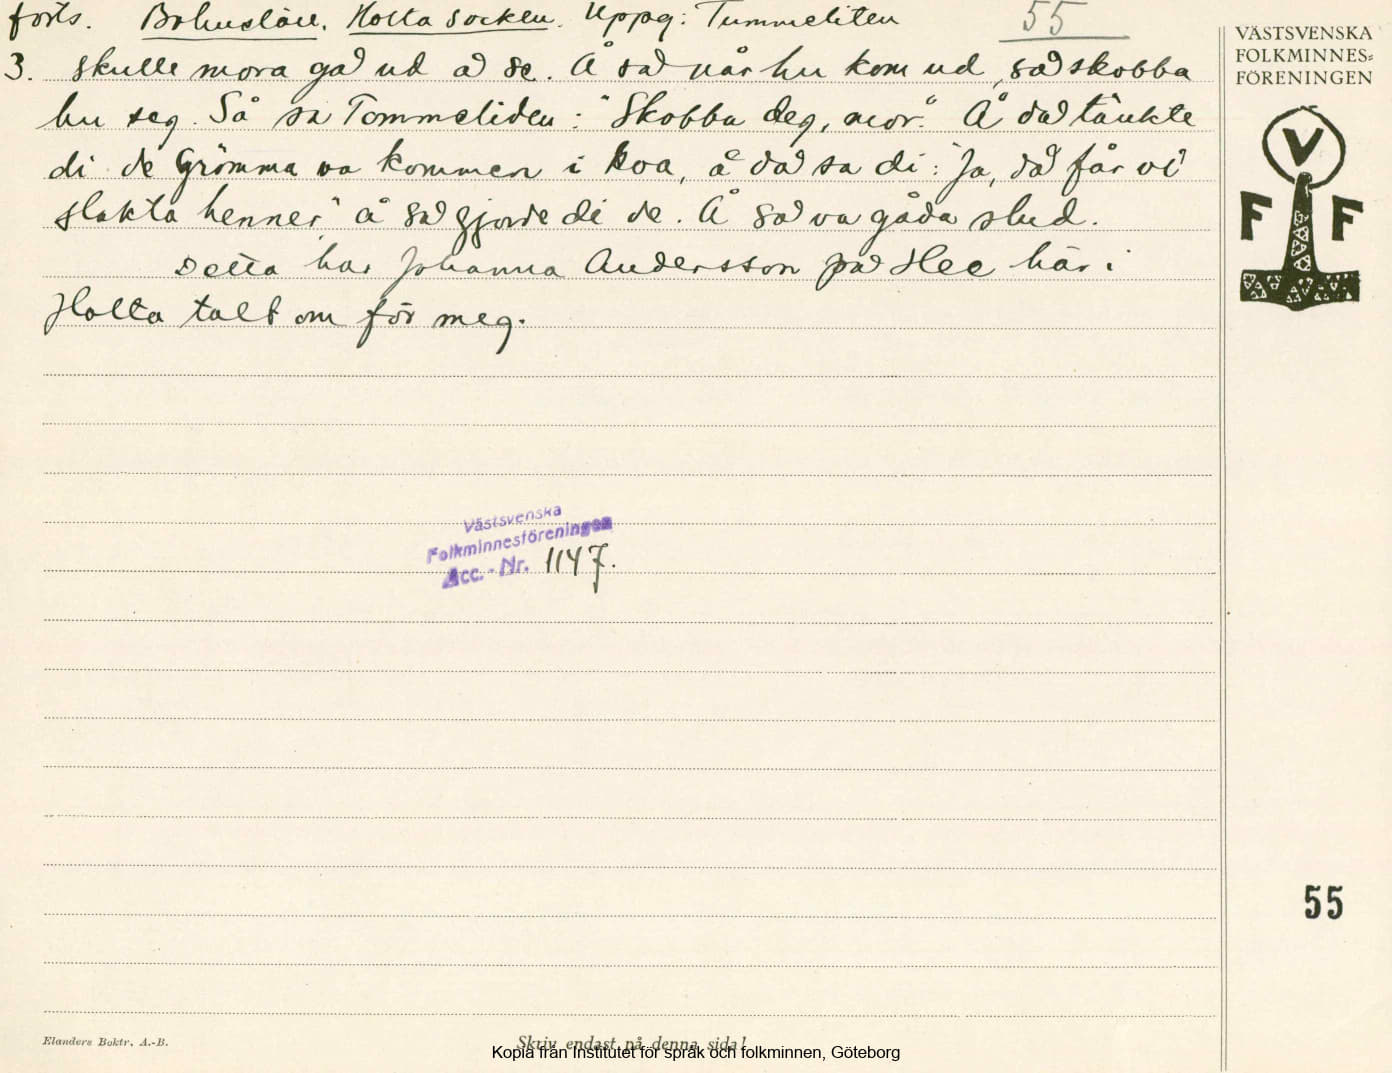 forts. Bohuslän. Holta socken. Uppg: Tummeliten 55
VÄSTSVENSKA
FOLKMINNES-
FÖRENINGEN
3. skulle mora gå ud å se. Å så når hu kom ud, så skobba
hu seg. Så sa Tommeliden: "Skobba deg, mor." Å då tänkte
di de Grömma va kommen i koa, å då sa di: "Ja, då får vi
slakta henner" å så gjorde di de. Å så va gåda slud.
Detta har Johanna Andersson på Hee här i
Holta talt om för meg.
V
F F
Västsvenska
Folkminnesföreningen
Acc.-Nr. 1147.
55
Elanders Boktr. A.-B.
Skriv endast på denna sida!
Kopia från Institutet för språk och folkminnen, Göteborg